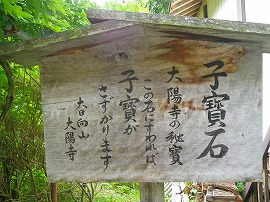 子寶石
大陽寺の秘寶
この石にすわれば
子寶が
さずかります
大日向山
大陽寺